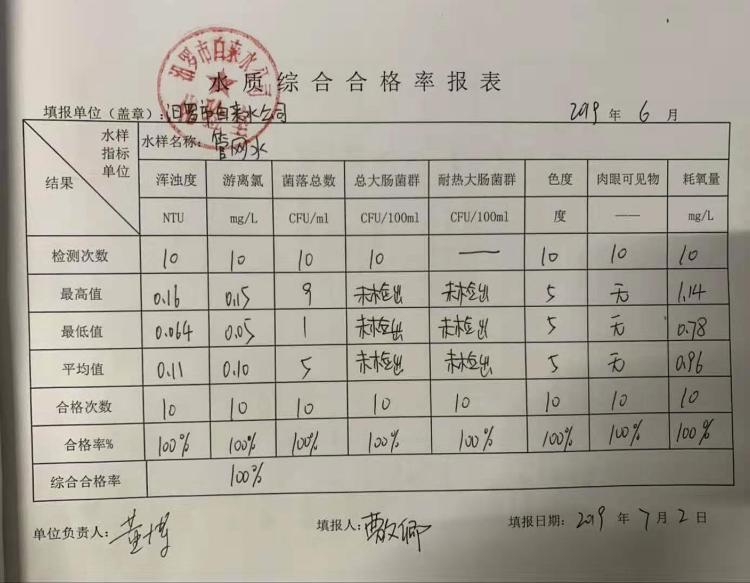 汨罗市自来水公司
水质综合合格率报表
填报单位（盖章）：汨罗市自来水公司 2019 年 6 月
水样 指标 单位 结果 水样名称：管网水
浑浊度 游离氯 菌落总数 总大肠菌群 耐热大肠菌群 色度 肉眼可见物 耗氧量
NTU mg/L CFU/ml CFU/100ml CFU/100ml 度 —— mg/L
检测次数 10 10 10 10 — 10 10 10
最高值 0.16 0.15 9 未检出 未检出 5 无 1.14
最低值 0.064 0.05 1 未检出 未检出 5 无 0.78
平均值 0.11 0.10 5 未检出 未检出 5 无 0.96
合格次数 10 10 10 10 10 10 10 10
合格率% 100% 100% 100% 100% 100% 100% 100% 100%
综合合格率 100%
单位负责人： 填报人： 填报日期：2019 年 7 月 2 日